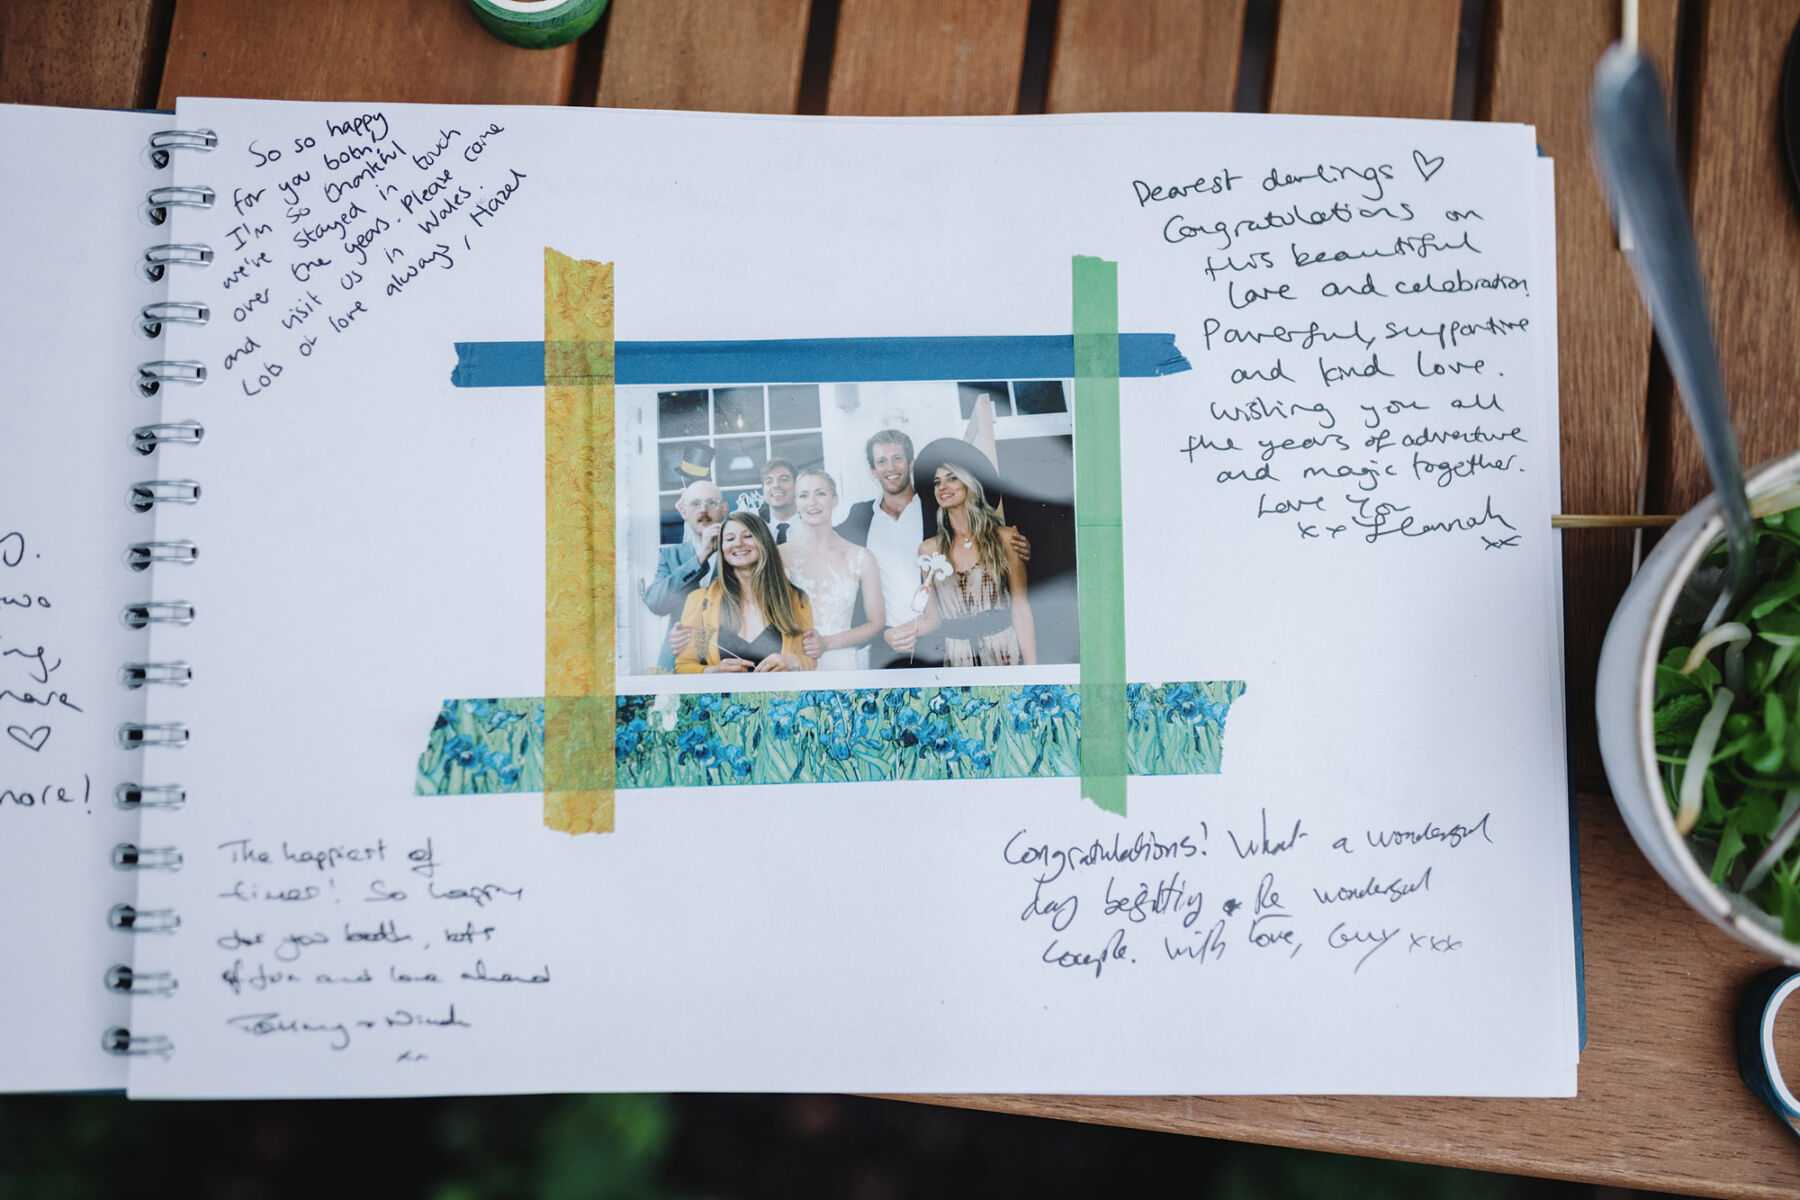 So so happy
for you both,
I'm so thankful
we've stayed in touch
over the years. Please come
and visit us in Wales.
Lots of love always, Hazel
Dearest darlings ♡
Congratulations on
this beautiful
love and celebration
Powerful, supportive
and kind love.
Wishing you all
the years of adventure
and magic together.
Love you
xx Leannah
xx
The happiest of
times! So happy
for you both, lots
of fun and love ahead
xx
Congratulations! What a wonderful
day befitting a wonderful
couple. With love, Guy xxx
two
♡
more!